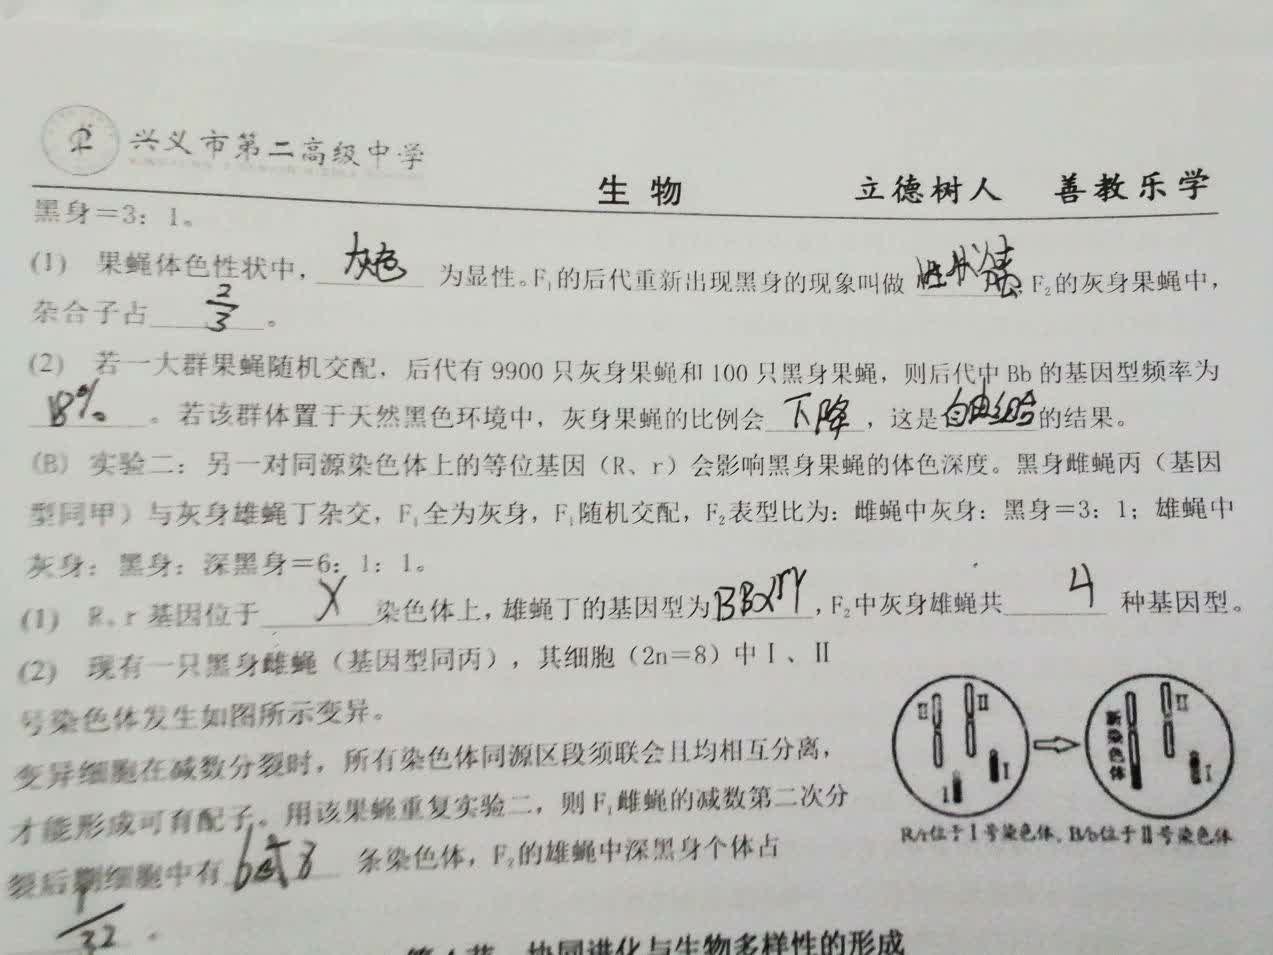 兴义市第二高级中学
生物 立德树人 善教乐学
黑身=3：1。
(1) 果蝇体色性状中，灰色 为显性。F₁的后代重新出现黑身的现象叫做 性状分离 F₂的灰身果蝇中，
杂合子占 2/3 。
(2) 若一大群果蝇随机交配，后代有9900只灰身果蝇和100只黑身果蝇，则后代中Bb的基因型频率为
18% 。若该群体置于天然黑色环境中，灰身果蝇的比例会 下降 ，这是 的结果。
(B) 实验二：另一对同源染色体上的等位基因（R、r）会影响黑身果蝇的体色深度。黑身雌蝇丙（基因
型同甲）与灰身雄蝇丁杂交，F₁全为灰身，F₁随机交配，F₂表型比为：雌蝇中灰身：黑身=3：1；雄蝇中
灰身：黑身：深黑身=6：1：1。
(1) R、r基因位于 X 染色体上，雄蝇丁的基因型为 BBXʳY ，F₂中灰身雄蝇共 4 种基因型。
(2) 现有一只黑身雌蝇（基因型同丙），其细胞（2n=8）中Ⅰ、Ⅱ
号染色体发生如图所示变异。
变异细胞在减数分裂时，所有染色体同源区段须联会且均相互分离，
才能形成可育配子。用该果蝇重复实验二，则F₁雌蝇的减数第二次分
裂后期细胞中有 6或8 条染色体，F₂的雄蝇中深黑身个体占
1/32 。
Ⅱ Ⅱ Ⅰ Ⅰ
新染色体 Ⅱ Ⅰ
R/r位于Ⅰ号染色体、B/b位于Ⅱ号染色体
协同进化与生物多样性的形成